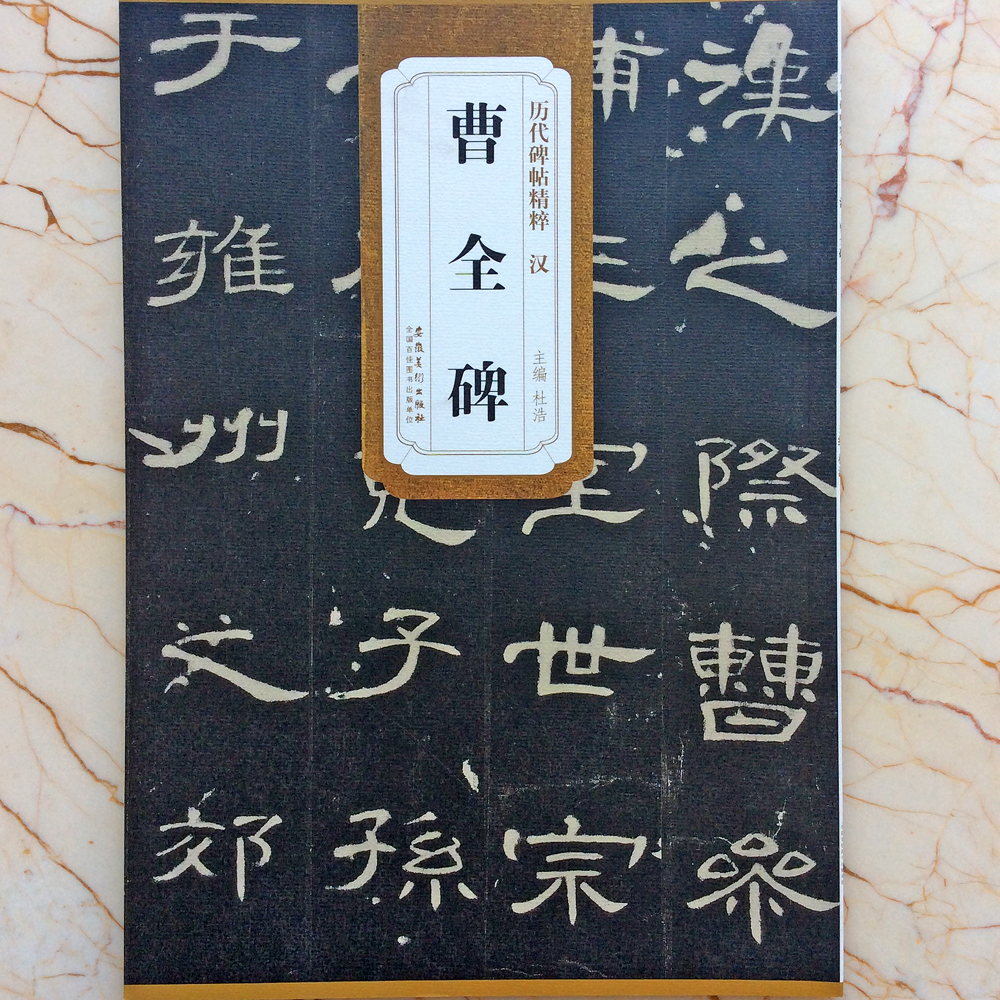 漢之際曹參
世宗
子孫
于雍州之郊
历代碑帖精粹 汉
主编 杜浩
曹全碑
安徽美术出版社
全国百佳图书出版单位